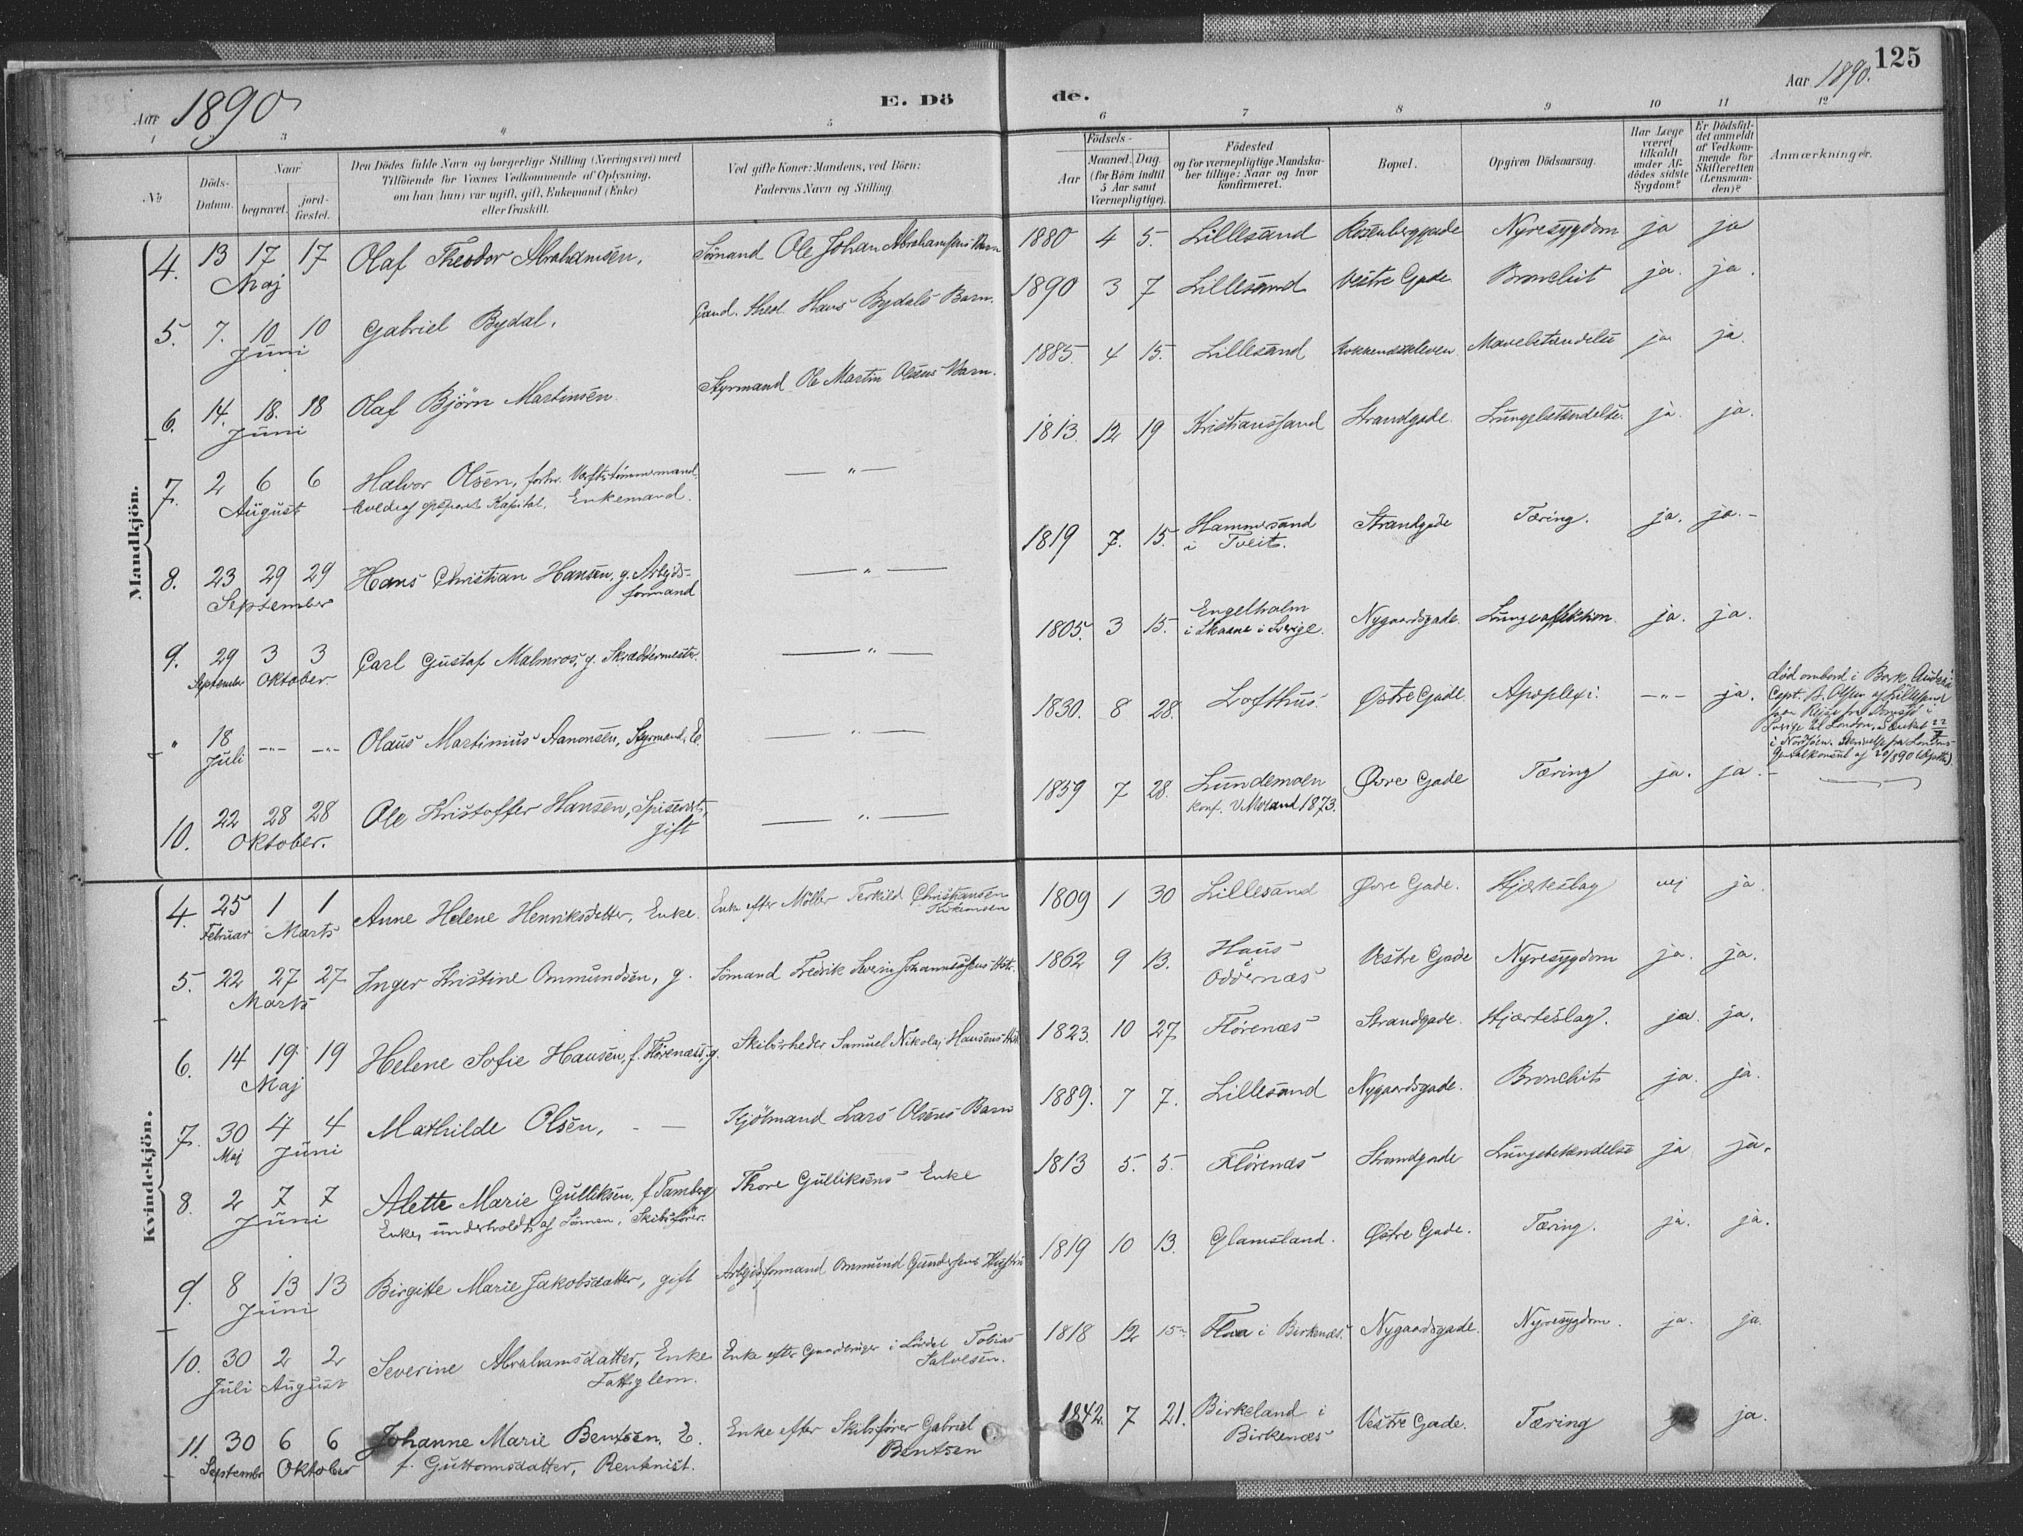 Aar 1890
E. Dö
de.
Aar 1890.
125
1 2 3 4 5 6 7 8 9 10 11 12
No
Döds-Datum.
Naar
begravet.
jord-fæstet.
Den Dödes fulde Navn og borgerlige Stilling (Næringsvei) med
Tilföiende for Voxnes Vedkommende af Oplysning,
om han (hun) var ugift, gift, Enkemand (Enke)
eller fraskilt.
Ved gifte Koner: Mandens, ved Börn:
Faderens Navn og Stilling.
Födsels-
Aar
Maaned. Dag.
(for Börn indtil
5 Aar samt
Værnepligtige).
Födested
og for værnepligtige Mandska-
ber tillige: Naar og hvor
konfirmeret.
Bopæl.
Opgiven Dödsaarsag.
Har Læge
været
tilkaldt
under Af-
dödes sidste
Sygdom?
Er Dödsfal-
det anmeldt
af Vedkom-
mende for
Skifteretten
(Lensman-
den)?
Anmærkninger.
Mandkjön.
4. 13 17 17 Olaf Theodor Abrahamsen. Sömand Ole Johan Abrahamsens Barn 1880 4 5. Lillesand Rosenberggade Nyresygdom ja ja
Maj
5. 7. 10 10 Gabriel Bydal. Cand. theol. Hans Bydals Barn. 1890 3 7 Lillesand Vestre Gade Bronchit ja. ja.
Juni
6. 14. 18. 18 Olaf Björn Martinsen. Styrmand Ole Martin Olsens Barn. 1885. 4 15. Lillesand Kokkenskleven Mavebetændelse ja ja.
Juni
7. 2 6 6 Halvor Olsen, forhv. Verftstömmermand — " — 1813. 12 19 Kristianssand Strandgade. Lungebetændelse. ja. ja.
August levede af opsparet Kapital, Enkemand.
8. 23 29 29 Hans Christian Hansen, g. Arbejds-formand — " — 1819 7. 15. Hammersand i Tveit. Strandgade Tæring. ja. ja.-
September
9. 29 3 3 Carl Gustaf Malmros, g. Skræddermester. — " — 1805. 3 15. Engelholm i Skaane i Sverige. Nygaardsgade. Lungeaffektion. ja. ja.
September Oktober.
" 18 —"— —"— Olaus Martinius Aanonsen, Styrmand, E. — " — 1830. 8 28. Lofthus. Østre Gade. Apoplexi. —"— ja.
Juli
död ombord i Bark
Capt. B. Olsen af Lillesand
Sverige til London, Sænket 22/7
i Nordsöen.
10. 22 28 28 Ole Kristoffer Hansen, Spisevert, gift — " — 1859 7 28. Lundemoen Øvre Gade Tæring ja. ja.
Oktober. konf. V. Moland 1873.
Kvindekjön.
4. 25 1 1 Anne Helene Henriksdatter, Enke. Enke efter Möller Terkild Christiansen 1809 1 30 Lillesand Øvre Gade. Hjerteslag nej ja
Februar Marts
5. 22 27 27 Inger Kristine Ommundsen, g. Sömand Fredrik Severin Johannesens Hstr. 1862 9 13. Haus i Oddernæs Vestre Gade Nyresygdom ja. ja.
Marts
6. 14 19 19 Helene Sofie Hansen, f. Flörenæs, g. Skibsrheder Samuel Nikolaj Hansens Hstr 1823. 10 27 Flörenæs Strandgade. Hjærteslag. ja ja.
Maj
7. 30 4 4 Mathilde Olsen, - — Kjöbmand Lars Olsens Barn 1889. 7 7. Lillesand Nygaardsgade. Bronchits ja. ja.
Maj Juni
8. 2 7 7 Alette Marie Gulliksen, f. Tamberg Thore Gulliksens Enke 1813 5. 5. Flörenæs Strandgade Lungebetændelse ja ja.
Juni Enke, underholdt af Sönnen, Skibsförer.
9. 8 13 13 Birgitte Marie Jakobsdatter, gift Arbejdsformand Ommund Gundersens Hustru 1819 10 13. Glamsland. Østre Gade. Tæring. ja. ja.
Juni
10. 30 2 2 Severine Abrahamsdatter, Enke Enke efter Gaardbruger i Lördal Tobias Salvesen. 1818 12 15 Flaa i Birkenæs. Nygaardsgade. Nyresygdom. ja. ja.
Juli August Fattiglem.
11. 30 6 6 Johanne Marie Bentsen, E. Enke efter Skibsförer Gabriel Bentsen 1842. 7 21. Birkeland i Birkenæs Vestre Gade. Tæring ja.
September Oktober f. Guttormsdatter, Rentenist.